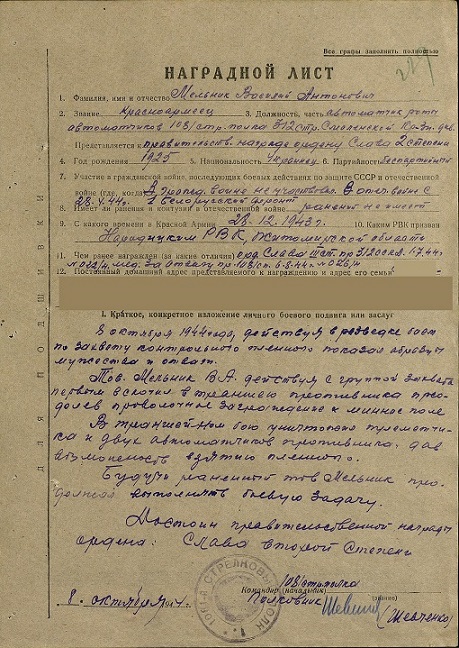 Все графы заполнять полностью
НАГРАДНОЙ ЛИСТ
1. Фамилия, имя и отчество Мельник Василий Антонович
2. Звание Красноармеец 3. Должность, часть автоматчик роты
автоматчиков 1081 стр. полка 312 стр. Смоленской Кр.Зн. див.
Представляется к правительств. награде ордену Слава 2 степени
4. Год рождения 1925 5. Национальность Украинец 6. Партийность Беспартийный
7. Участие в гражданской войне, последующих боевых действиях по защите СССР и отечественной
войне (где, когда) В гражд. войне не участвовал. В отеч. войне с
28.4.44г. 1 Белорусский фронт
8. Имеет ли ранения и контузии в отечественной войне ранений не имеет
9. С какого времени в Красной Армии 28.12.1943г. 10. Каким РВК призван
Народицким РВК, Житомирской области
11. Чем ранее награжден (за какие отличия) орд. Слава III ст. пр. 312
12. Постоянный домашний адрес представляемого к награждению и адрес его семьи
I. Краткое, конкретное изложение личного боевого подвига или заслуг
8 октября 1944 года, действуя в разведке боем
по захвату контрольного пленного показал образцы
мужества и отваги.
Тов. Мельник В.А. действуя с группой захвата
первым вскочил в траншею противника прео-
долев проволочное заграждение и минное поле
В траншейном бою уничтожил пулеметчи-
ка и двух автоматчиков противника, дав
возможность взятию пленного.
Будучи раненный тов Мельник про-
должал выполнять боевую задачу.
Достоин правительственной награды
ордена: Слава второй степени
1081 стр. полка
Командир (начальник)
Полковник
(Шевченко)
октября
Для подшивки
СТРЕЛКОВЫЙ ПОЛК